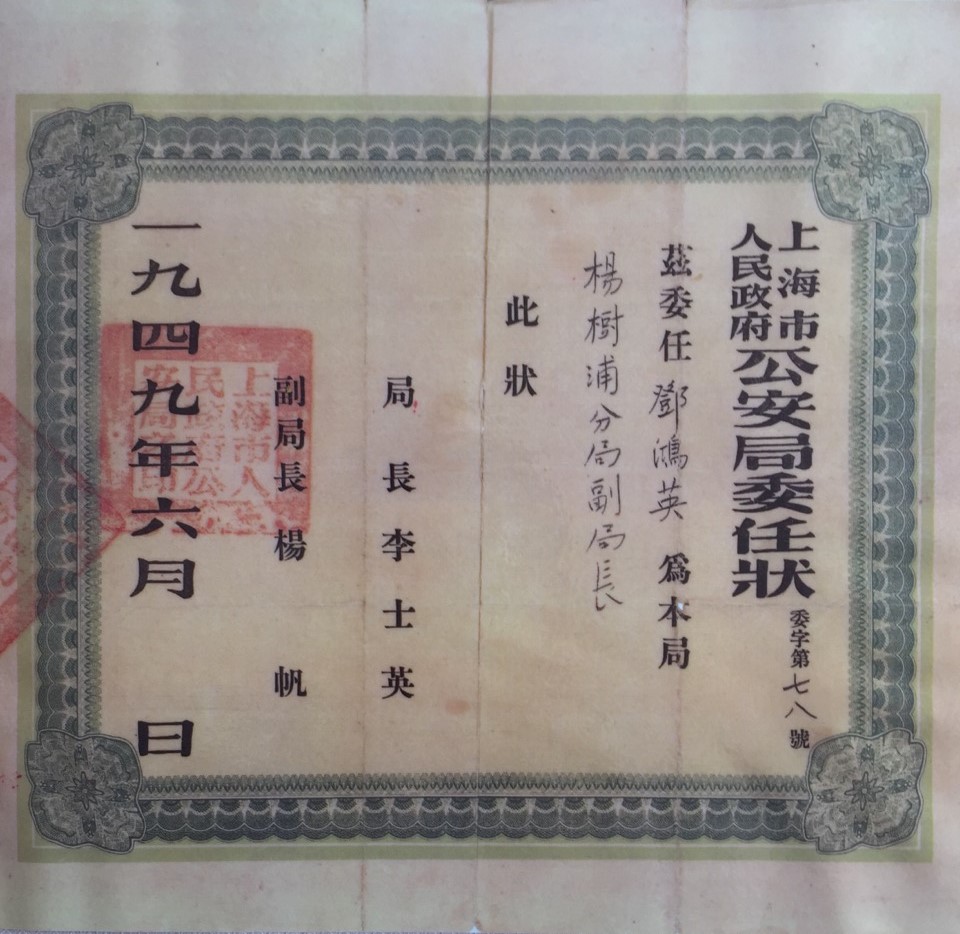 上海市
人民政府
公安局委任狀
委字第七八號
茲委任 鄧鴻英 爲本局
楊樹浦分局副局長
此狀
局長李士英
副局長楊帆
一九四九年六月 日
上海市人
民政府公
安局